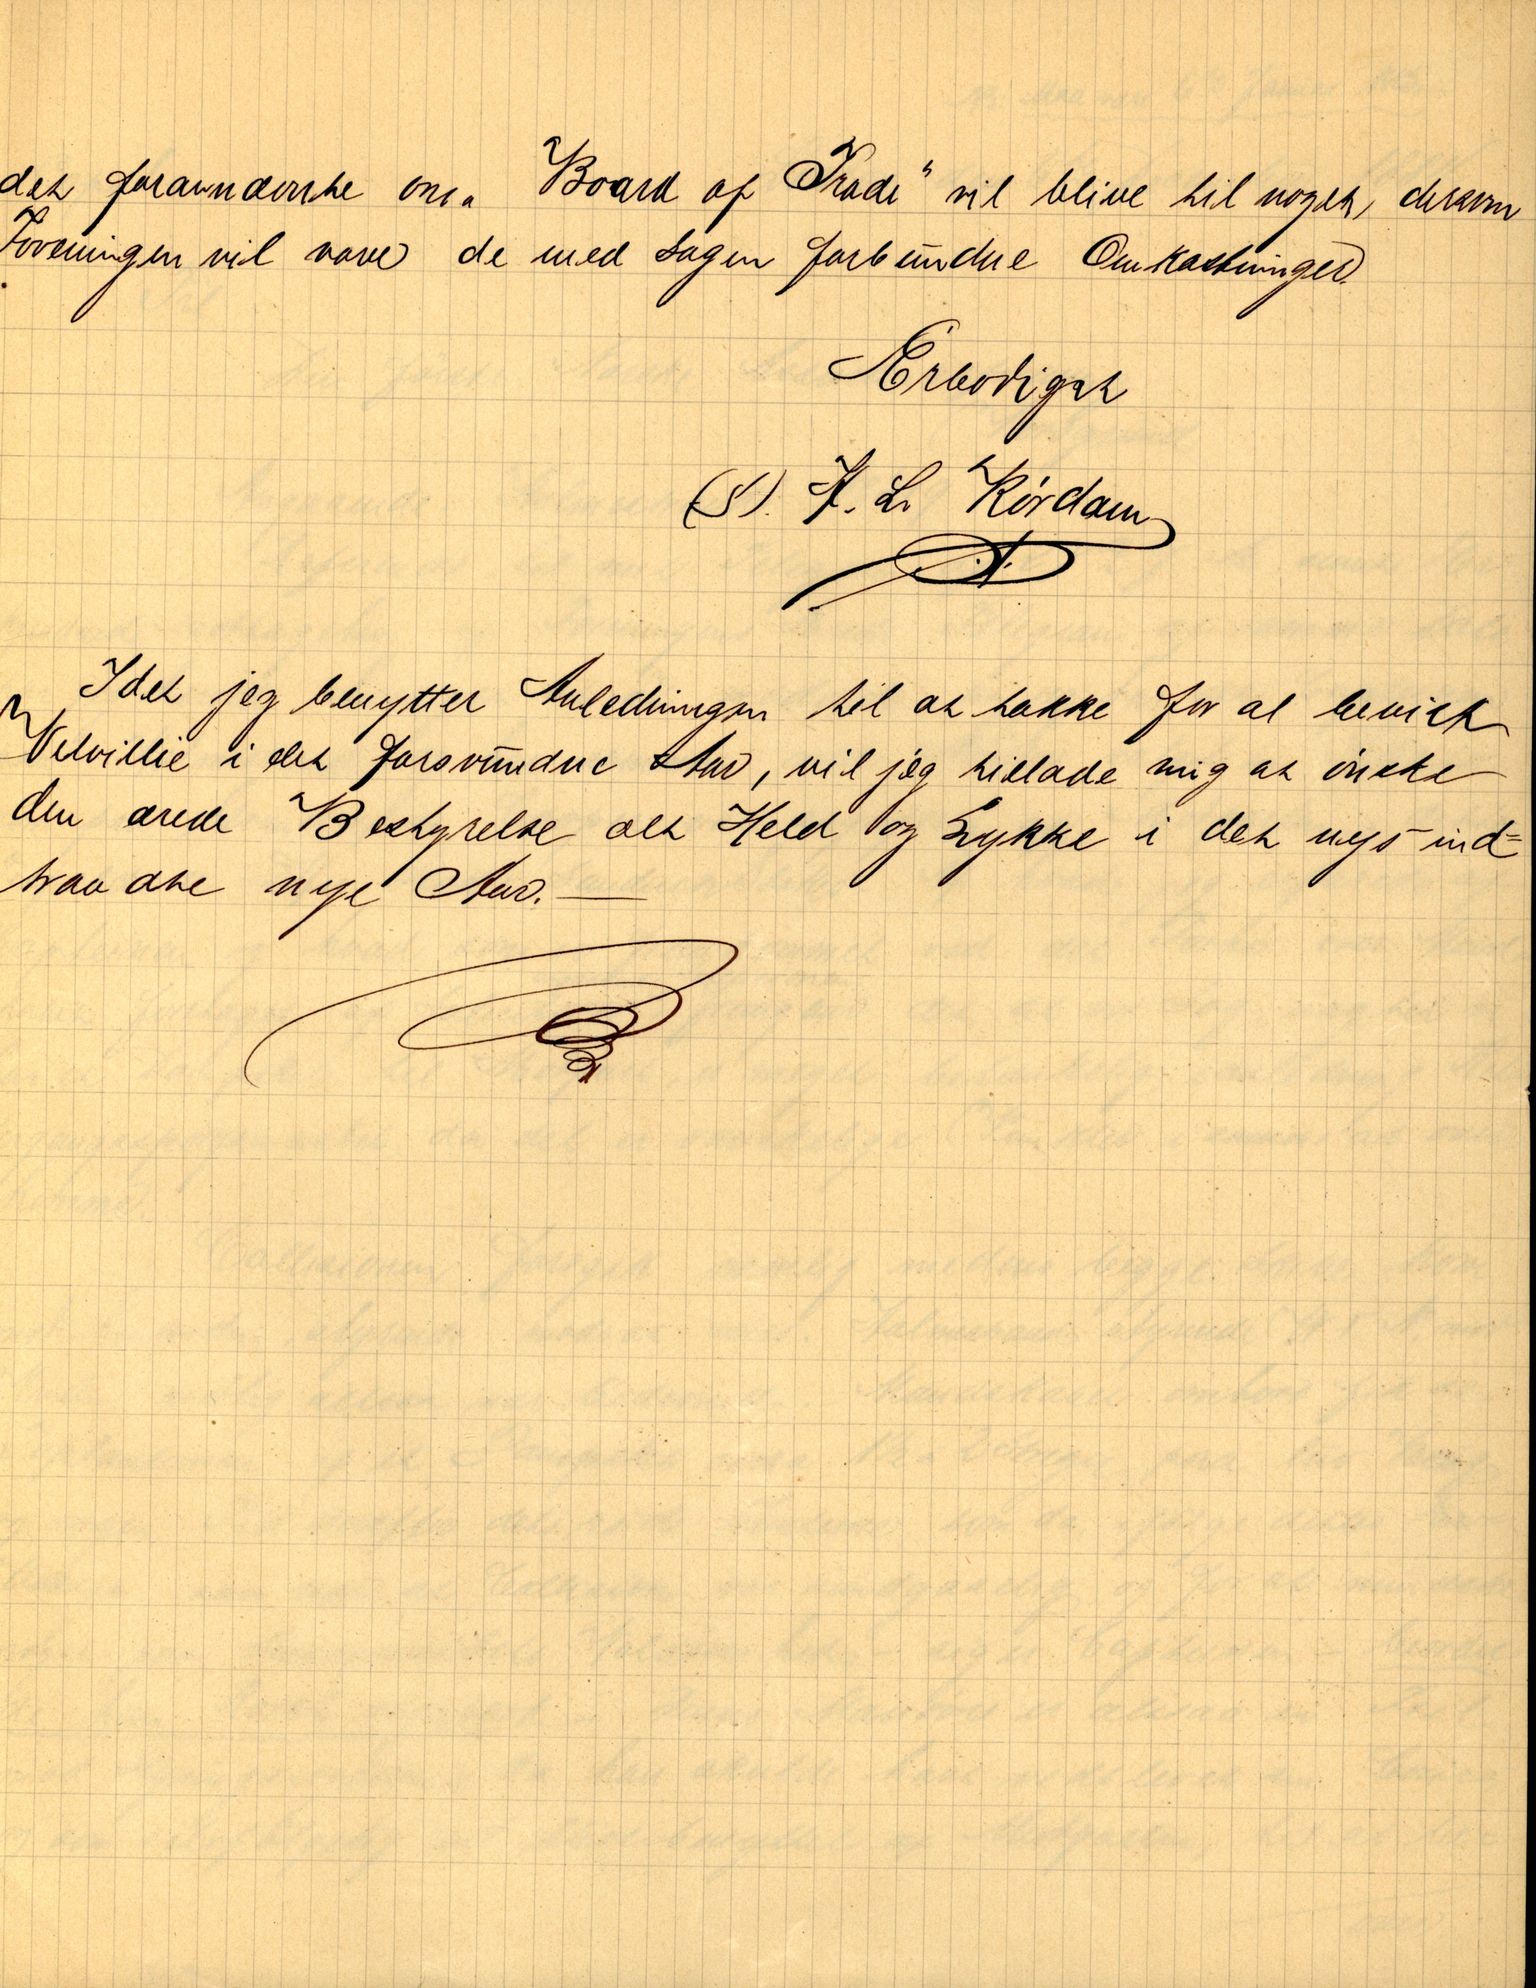 det foranvendørske om „Board of Trade" vil blive til noget, dersom
Foreningen vil vove de med Sagen forbundne Omkostninger.
Ærbødigst
(S). H. L. Rørdam
Idet jeg benytter Anledningen til at takke for al bevist
Velvillie i det forsvundne Aar, vil jeg tillade mig at ønske
den ærede Bestyrelse alt Held og Lykke i det nys ind=
traadte nye Aar. —